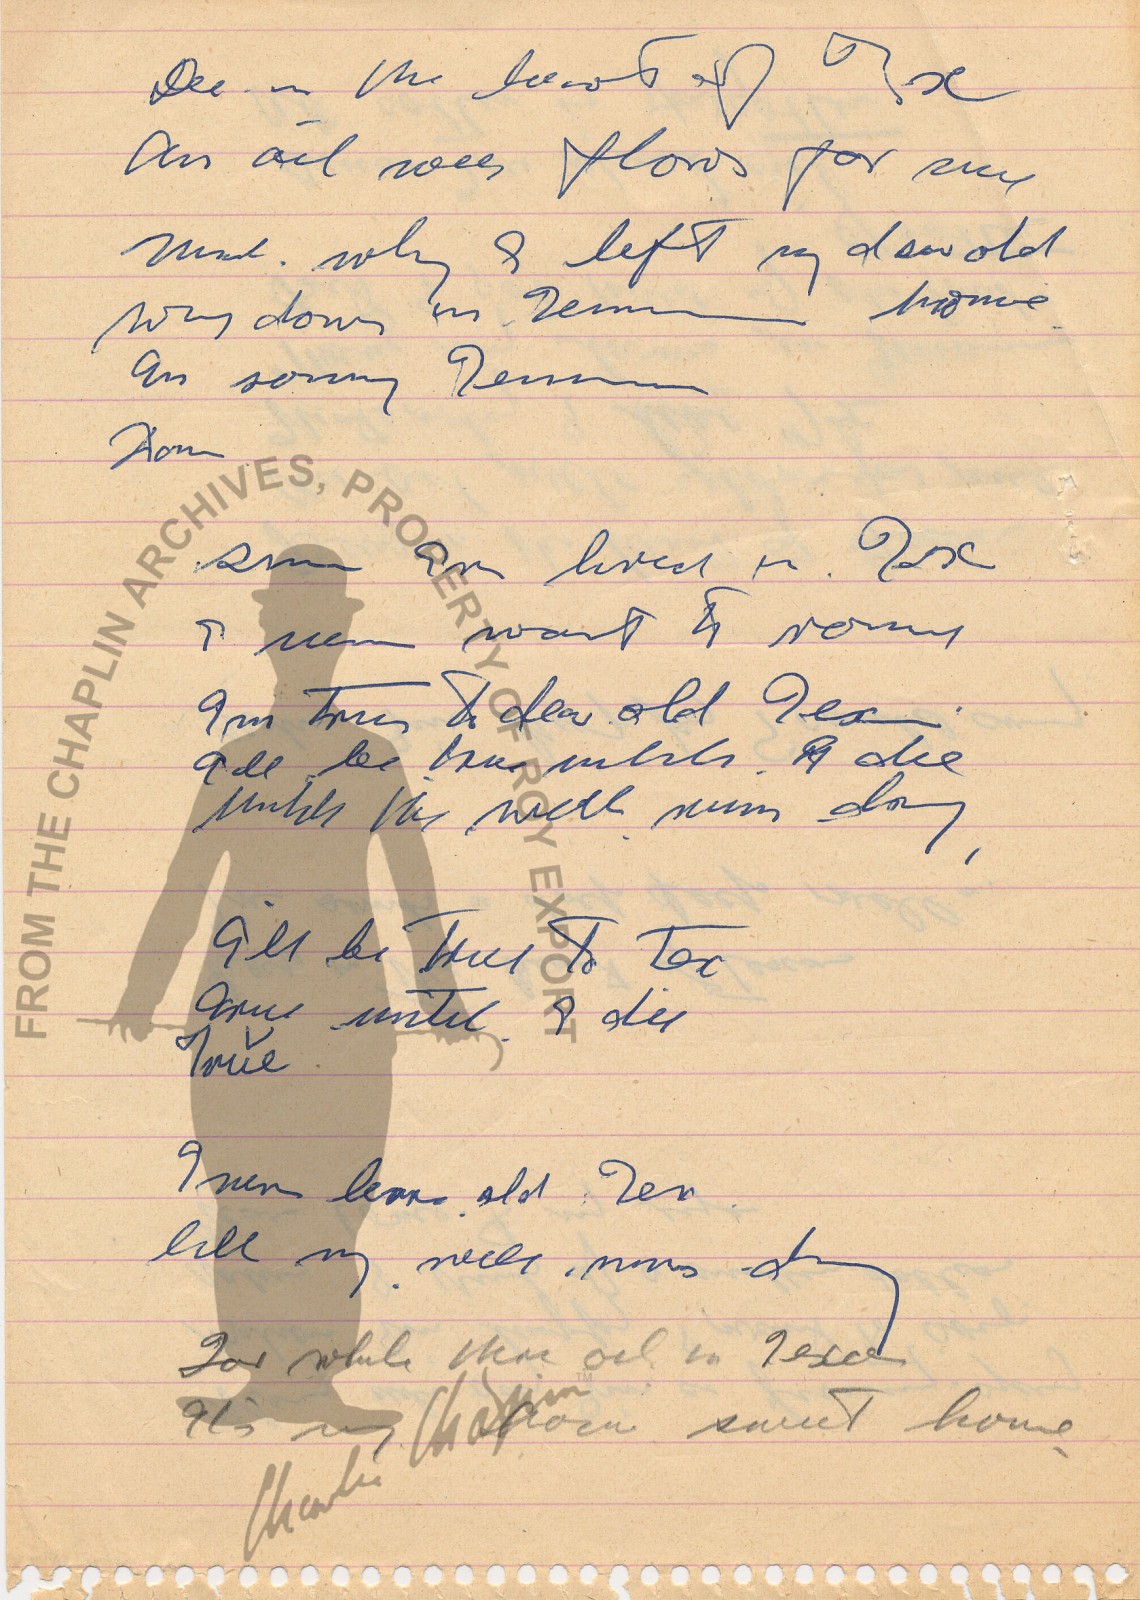 Dee in the heart of Tex
An oil well flows for me
why I left my dear old
way down in Tenn home
An sonny Tenn
Hom
Since Ive lived in Tex
I never want to roam
I'm true to dear old Texas
I'll be true untill I die
untill the well runs dry,
I'll be true to Tex
true until I die
True
I never leave old Tex
till my well runs dry
For while theres oil in Texas
It's my home sweet home
FROM THE CHAPLIN ARCHIVES, PROPERTY OF ROY EXPORT
Charlie Chaplin™